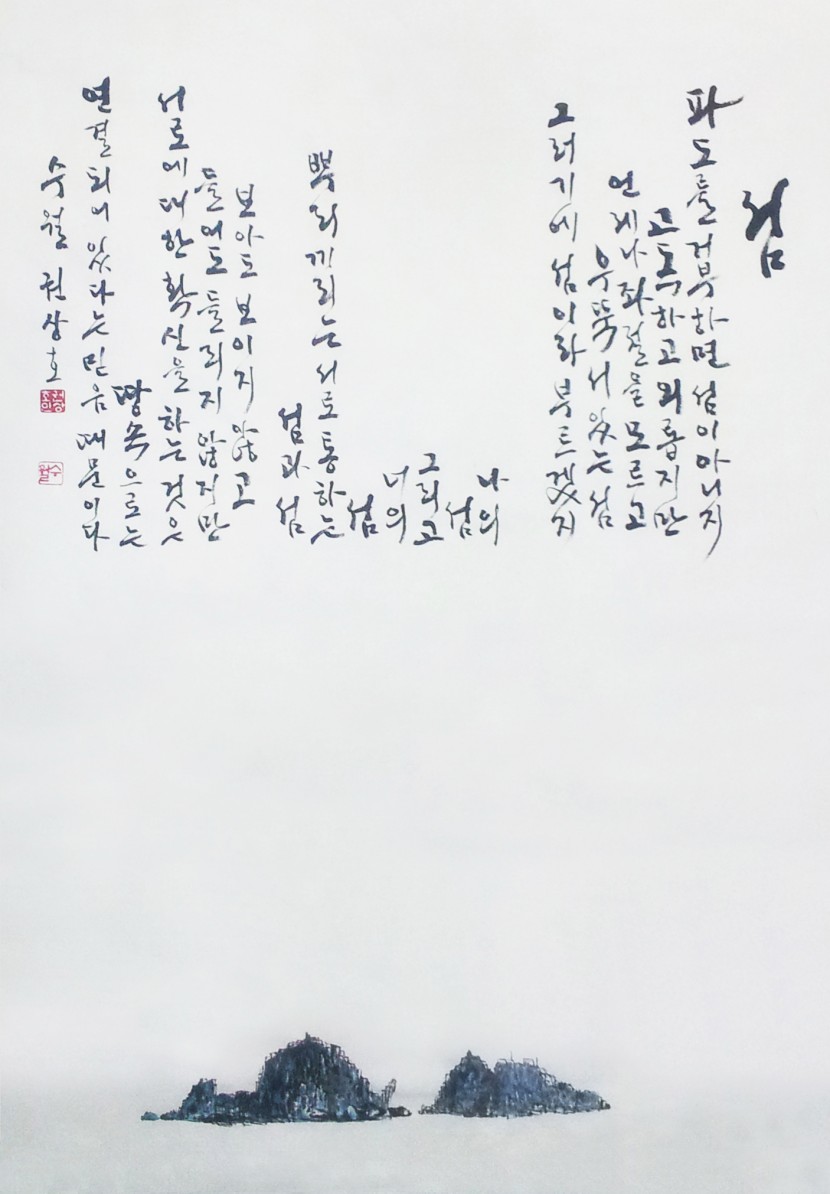 섬
파도를 거부하면 섬이 아니지
고독하고 외롭지만
언제나 좌절을 모르고
우뚝 서 있는 섬
그러기에 섬이라 부르겠지
나의
섬
그리고
너의
섬
뿌리끼리는 서로 통하는
섬과 섬
보아도 보이지 않고
들어도 들리지 않지만
서로에 대한 확신을 하는 것은
땅 속으로는
연결되어 있다는 믿음 때문이다
수월 권상호